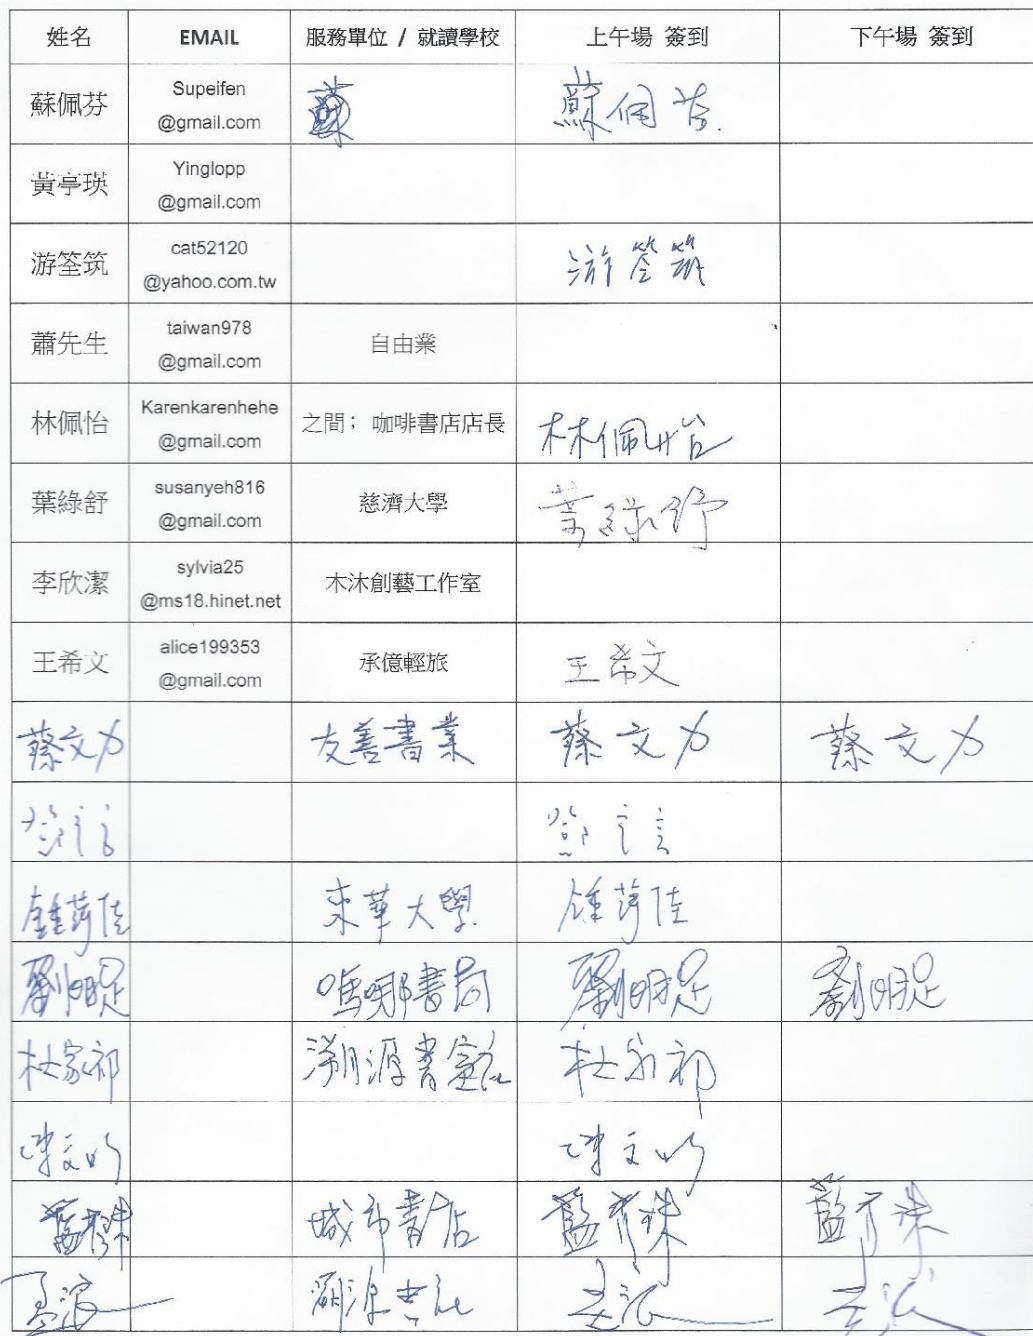 姓名 EMAIL 服務單位 / 就讀學校 上午場 簽到 下午場 簽到
蘇佩芬 Supeifen @gmail.com 蘇佩芬
黃亭瑛 Yinglopp @gmail.com
游筌筑 cat52120 @yahoo.com.tw 游筌筑
蕭先生 taiwan978 @gmail.com 自由業
林佩怡 Karenkarenhehe @gmail.com 之間； 咖啡書店店長 林佩怡
葉綠舒 susanyeh816 @gmail.com 慈濟大學 葉綠舒
李欣潔 sylvia25 @ms18.hinet.net 木沐創藝工作室
王希文 alice199353 @gmail.com 承億輕旅 王希文
蔡文力 友善書業 蔡文力 蔡文力
東華大學
劉明足 瑪哪書房 劉明足 劉明足
杜家祁 溯源書 杜家祁
陳文 陳文
城市書店